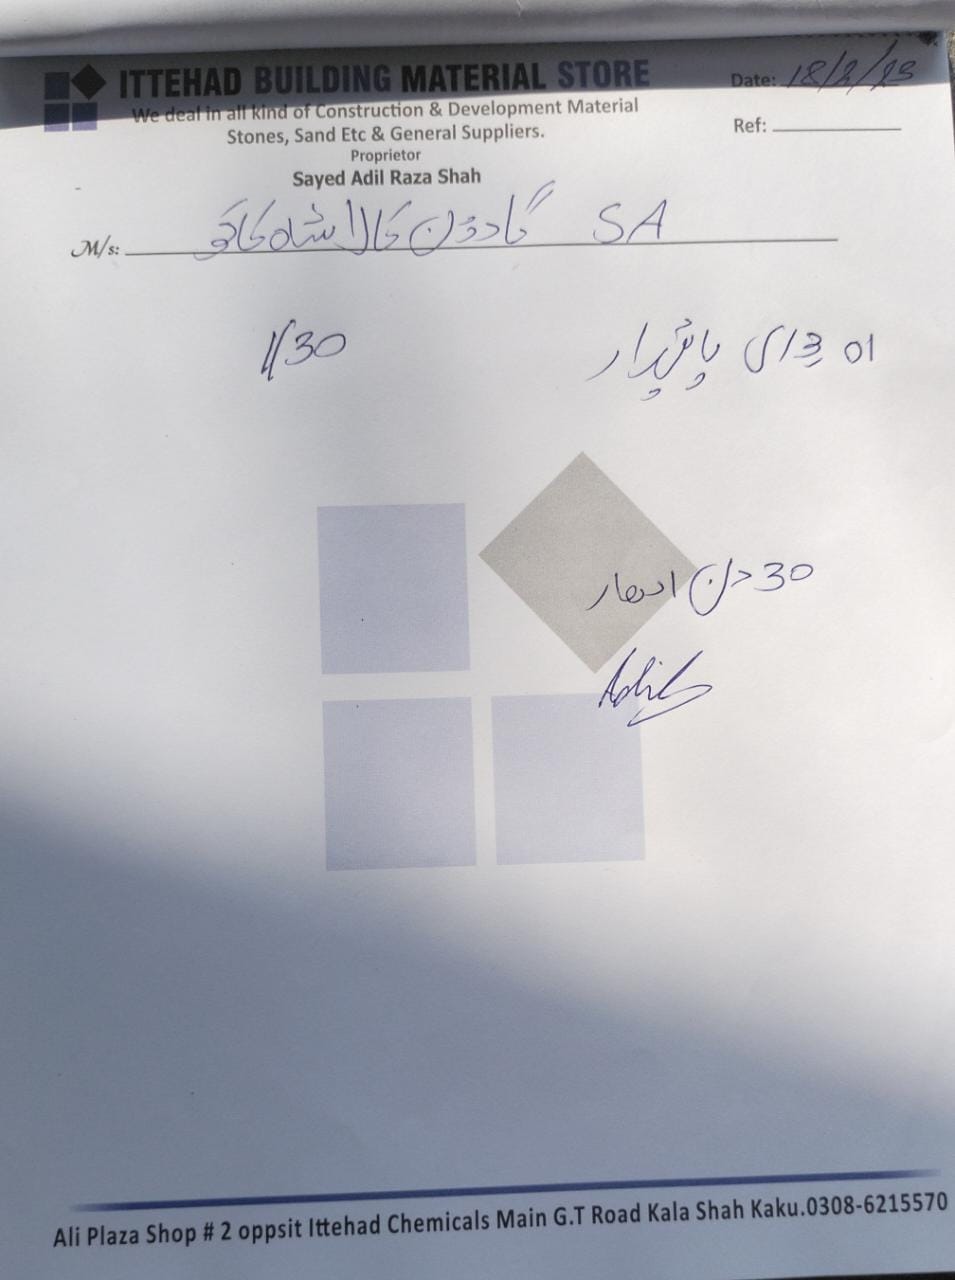 ITTEHAD BUILDING MATERIAL STORE
We deal in all kind of Construction & Development Material
Stones, Sand Etc & General Suppliers.
Proprietor
Sayed Adil Raza Shah
Date: 18/2/23
Ref:
M/s: SA گارڈن کالا شاہ کاکو
01 130/
30 دن ادھار
Adil
Ali Plaza Shop # 2 oppsit Ittehad Chemicals Main G.T Road Kala Shah Kaku.0308-6215570